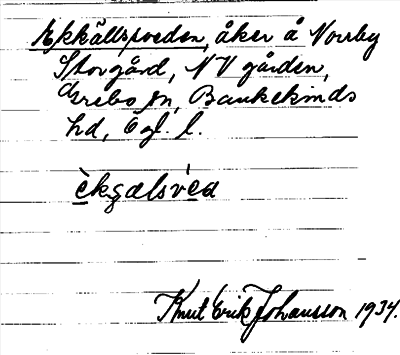 Ekkällsveden, åker å Norrby
Storgård, NV gården,
Grebo sn, Bankekinds
hd, Ögl. l.
èkgælsvéd
Knut Erik Johansson 1934.